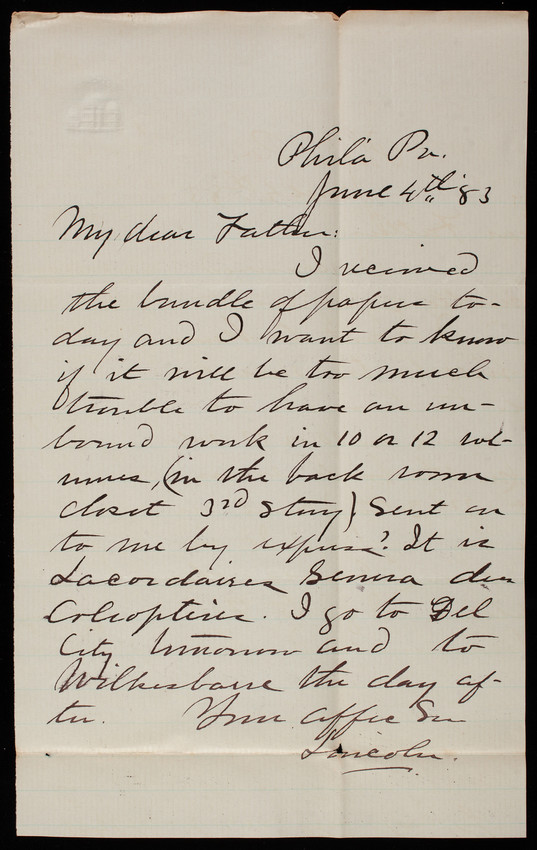 Phila Pa.
June 4th 83
My dear Father:
I received
the bundle of papers to-
day and I want to know
if it will be too much
trouble to have an un-
bound work in 10 or 12 vol-
umes, (in the back room
closet 3rd story) sent on
to me by express? It is
Lacordaires Genera des
Coleopteres. I go to Del
City tomorrow and to
Wilkesbarre the day af-
ter. Your affec Son
Lincoln.